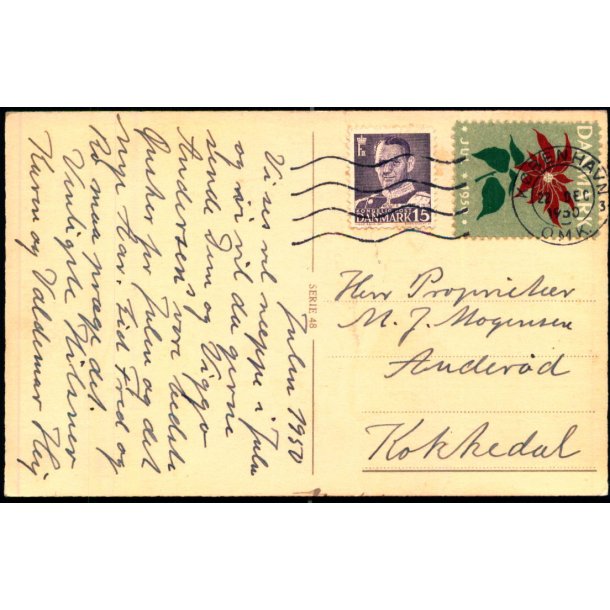 Julen 1950
Vi ses vel næppe i Julen
og vi vil da gerne
sende Dem og Viggo
Andersens vore bedste
Ønsker for Julen og det
nye Aar. Lid Fred og
Ro maa præge det
Venligste Hilsner
Karen og Valdemar Høj
SERIE 48
DANMARK 15
DANMARK
JUL 1950
KØBENHAVN
DEC
1950
OMK.
Herr Proprietær
M. J. Mogensen
Anderød
Kokkedal